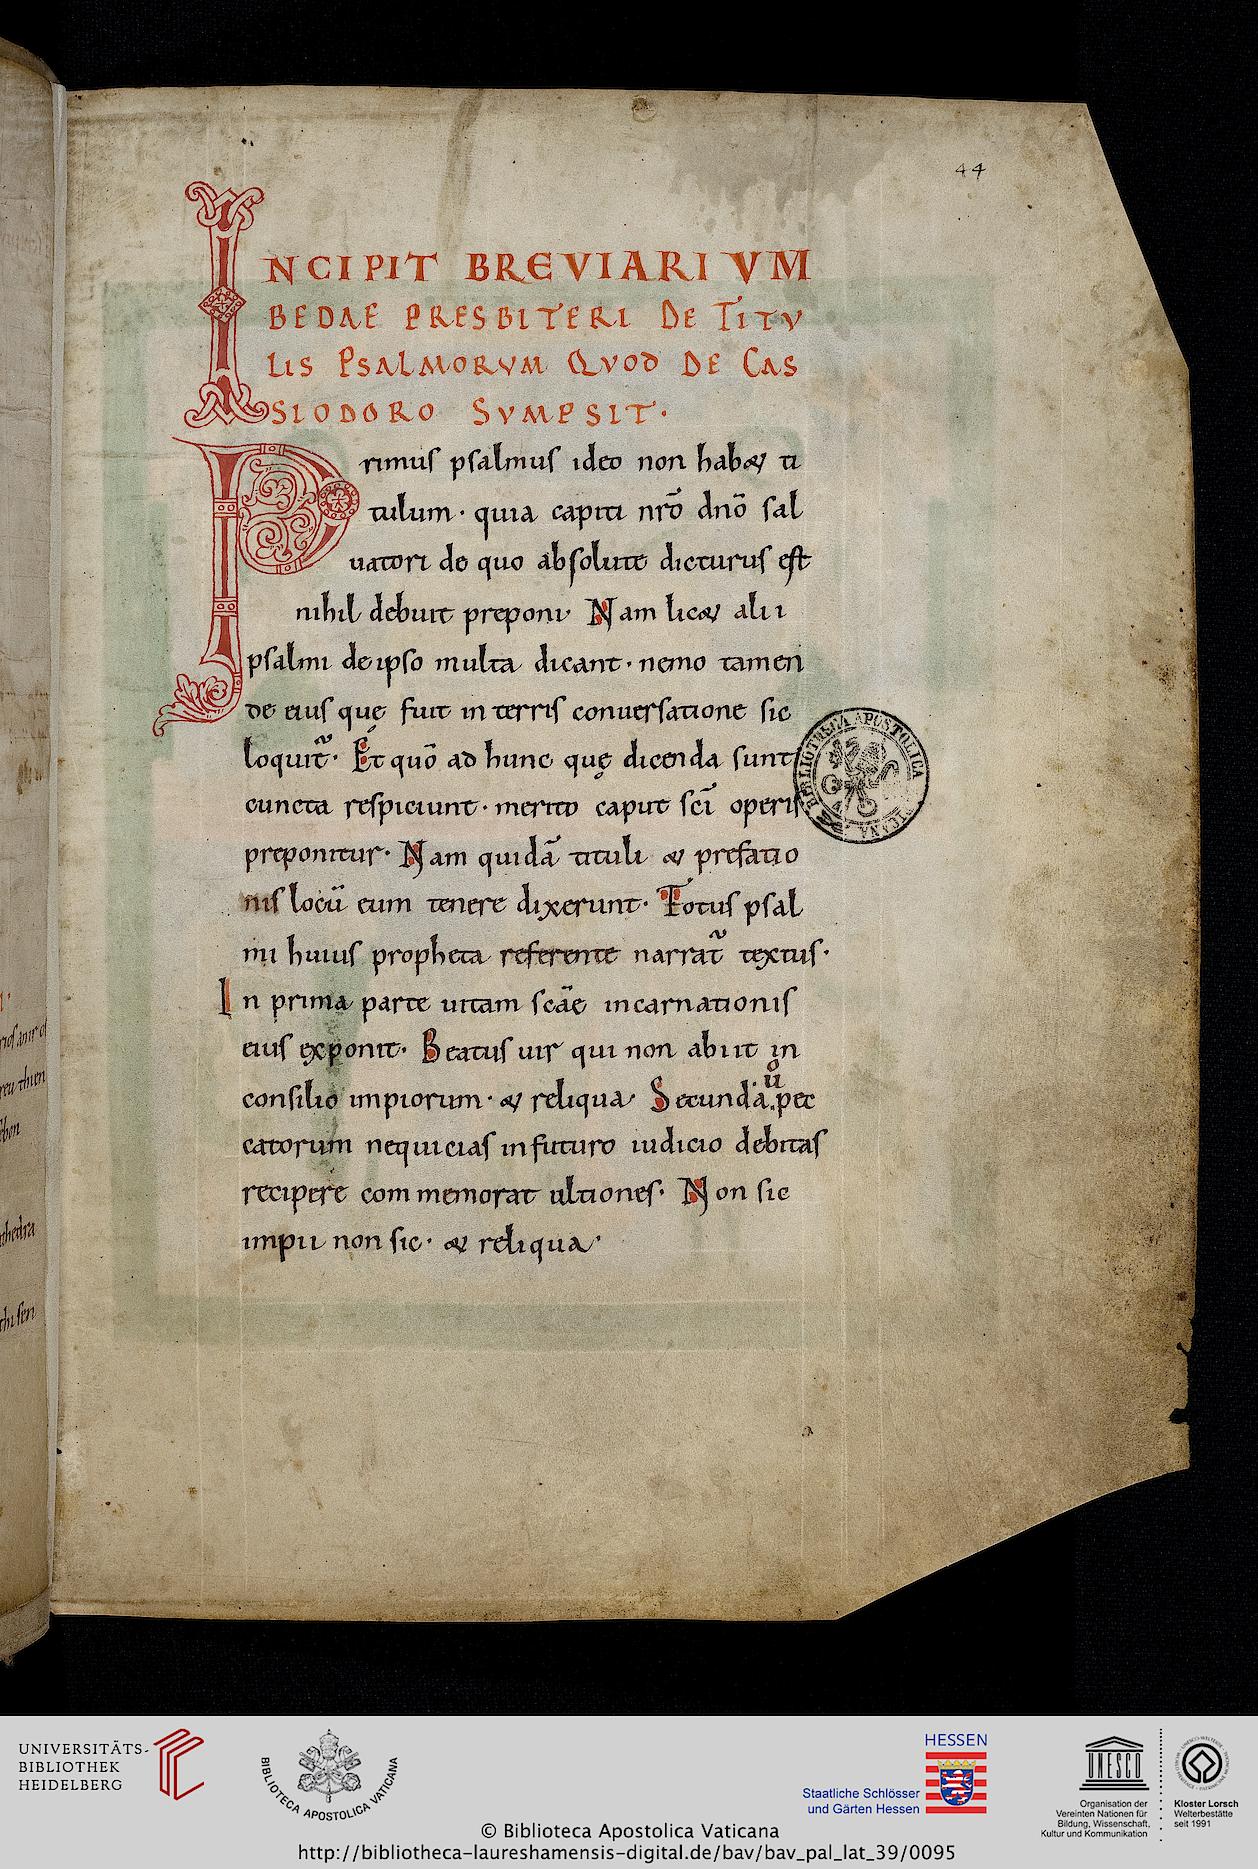 44
INCIPIT BREVIARIVM
BEDAE PRESBITERI DE TITV
LIS PSALMORVM QVOD DE CAS
SIODORO SVMPSIT·
Primus psalmus ideo non hab& ti
tulum· quia capiti nrō dnō sal
uatori de quo absolute dicturus est
nihil debuit preponi· Nam lic& alii
psalmi de ipso multa dicant· nemo tamen
de eius quę fuit in terris conuersatione sic
loquit᷑· Et quō ad hunc quę dicenda sunt
cuncta respiciunt· merito caput scī operis
preponitur· Nam quidā tituli & prefatio
nis locū eum tenere dixerunt· Totus psal
mi huius propheta referente narrat᷑ textus·
In prima parte uitam scāe incarnationis
eius exponit· Beatus uir qui non abiit in
consilio impiorum· & reliqua· Secunda uͦ pec
catorum nequicias in futuro iudicio debitas
recipere commemorat ultiones· Non sic
impii non sic· & reliqua·
BIBLIOTHECA APOSTOLICA VATICANA
UNIVERSITÄTS-
BIBLIOTHEK
HEIDELBERG
BIBLIOTECA APOSTOLICA VATICANA
HESSEN
Staatliche Schlösser
und Gärten Hessen
UNESCO
Organisation der
Vereinten Nationen für
Bildung, Wissenschaft,
Kultur und Kommunikation
Kloster Lorsch
Welterbestätte
seit 1991
© Biblioteca Apostolica Vaticana
http://bibliotheca-laureshamensis-digital.de/bav/bav_pal_lat_39/0095